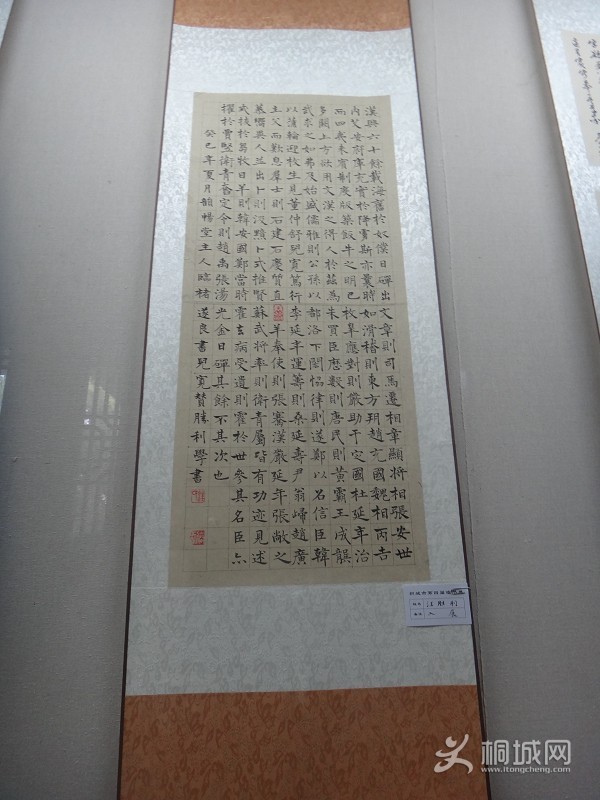 漢興六十餘載海舊於奴僕日磾出文章則司馬遷相章顯將相張安世
內艾安府庫充實於降虜斯亦曩時如滑稽則東方朔趙充國魏相丙吉
而四夷未賓制度版築飯牛之明已枚皋應對則嚴助于定國杜延年治
多闕上方欲用文漢之得人於茲為朱買臣歷數則唐民則黃霸王成龔
武求之如弗及始盛儒雅則公孫以都洛下閎協律則遂鄭以名信臣韓
以蒲輪迎枚生見董仲舒兒寬篤行李延年運籌則桑延壽尹翁歸趙廣
主父而歎息羣士則石建石慶質直羊奉使則張騫漢嚴延年張敞之
慕嚮異人並出卜則汲黯卜式推賢蘇武將率則衛青屬皆有功迹見述
式拔於芻牧日羊則韓安國鄭當時霍去病受遺則霍於世參其名臣亦
擢於賈豎衛青奮定令則趙禹張湯光金日磾其餘不其次也
癸巳年夏月韻暢堂主人臨褚遂良書兒寬贊勝利學書
汪胜利
入展
桐城网
www.itongcheng.com